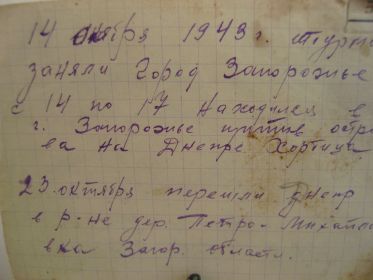 14 октября 1943 г. штурмо
заняли Город Запорожье
с 14 по 17 находился в
г. Запорожье против остро
ва на Днепре Хортица
23 октября перешли Днепр
в р-не дер. Петро-Михайло
вка Запор. области.